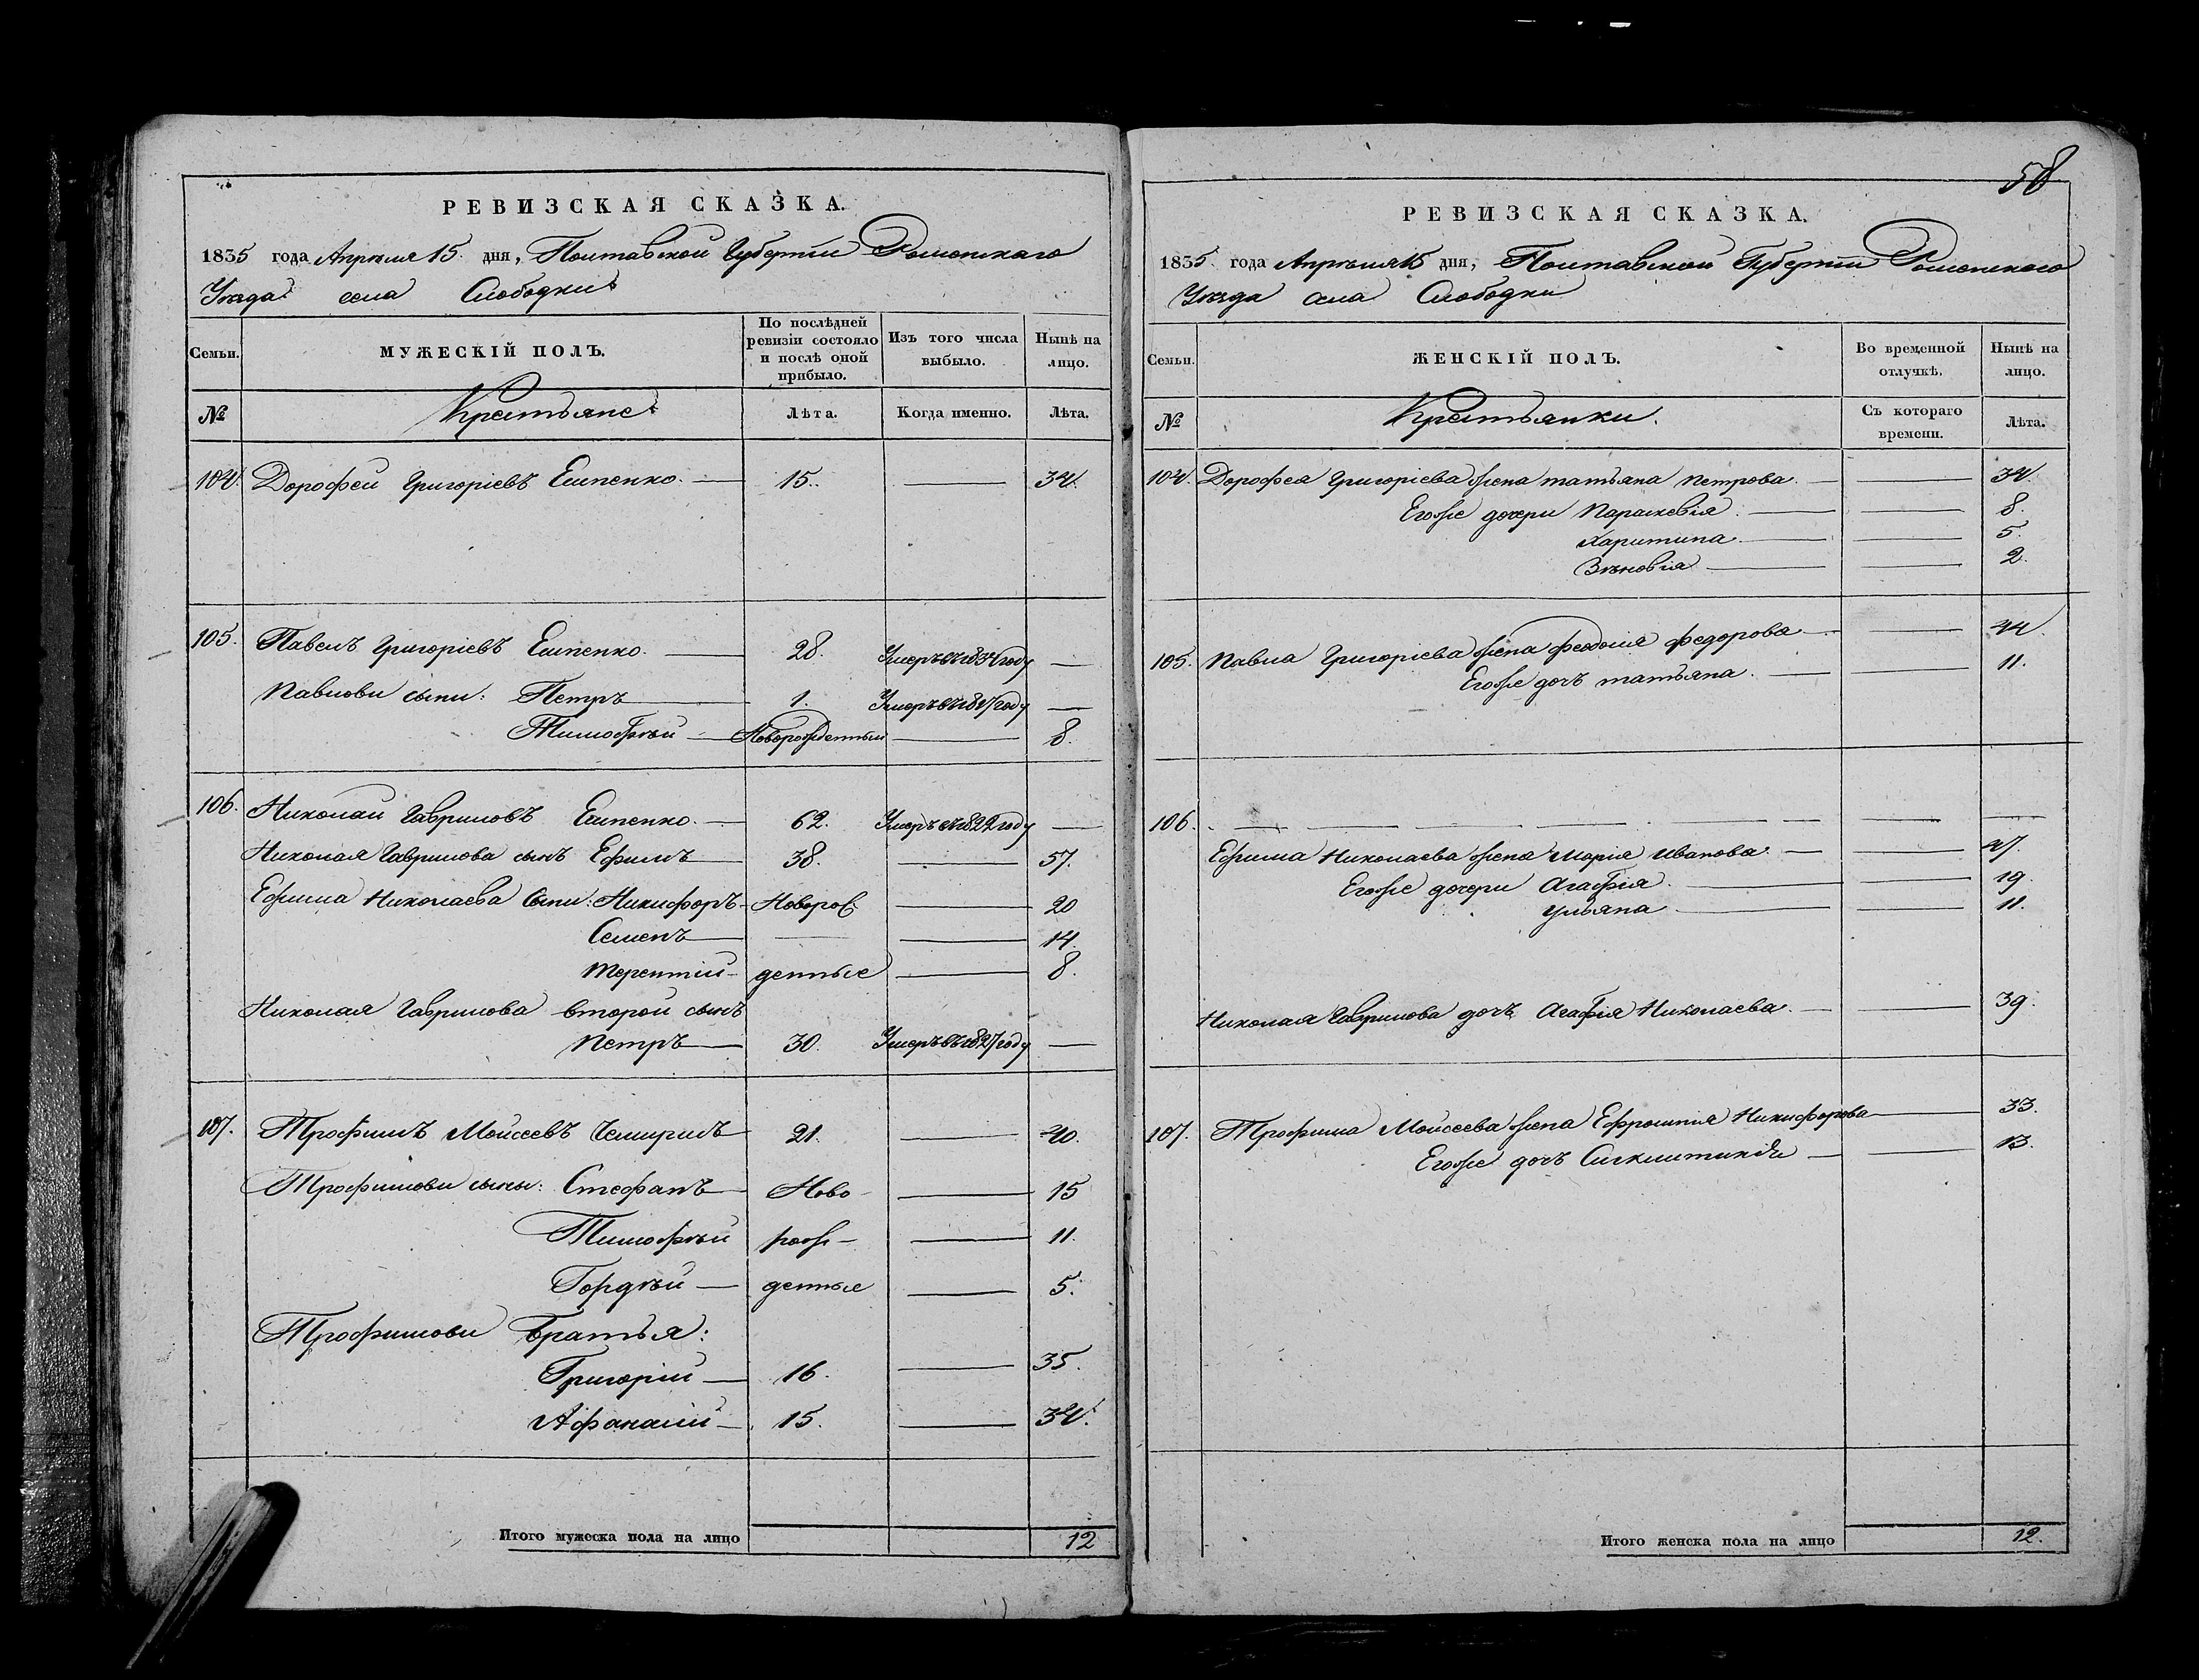 РЕВИЗСКАЯ СКАЗКА.
1835 года Апрѣля 15 дня, Полтавской Губернїи Роменскаго
Уѣзда села Слободки
Семьи.
МУЖЕСКІЙ ПОЛЪ.
По послѣдней ревизіи состояло и послѣ оной прибыло.
Изъ того числа выбыло.
Нынѣ на лицо.
№
Крестьяне
Лѣта.
Когда именно.
Лѣта.
104. Дорофей Григоріевъ Есипенко. 15. 34.
105. Павелъ Григоріевъ Есипенко. 28. Умеръ въ 1834 году
Павлови сыни: Петръ 1. Умеръ въ 1817 году
Тимофѣй Новорожденный 8.
106. Николай Гавриловъ Есипенко. 62. Умеръ въ 1822 году
Николая Гаврилова сынъ Ефимъ 38. 57.
Ефима Николаева сыни: Никифоръ Новорож 20
Семенъ 14.
Терентій денные 8.
Николая Гаврилова второй сынъ
Петръ 30. Умеръ въ 1827 году
107. Трофимъ Мойсеевъ 21. 40.
Трофимови сыны: Стефанъ Ново 15
Тимофѣй рож- 11.
Гордѣй денные 5.
Трофимови братья:
Григорій 16. 35.
Афанасій 15. 34.
Итого мужеска пола на лицо 12
58
РЕВИЗСКАЯ СКАЗКА.
1835 года Апрѣля 15 дня, Полтавской Губернїи Роменскаго
Уѣзда села Слободки
Семьи.
ЖЕНСКІЙ ПОЛЪ.
Во временной отлучкѣ.
Нынѣ на лицо.
№
Крестьянки.
Съ котораго времени.
Лѣта.
104. Дорофея Григоріева жена татьяна петрова. 34.
Егоже дочери Параскевія. 8.
Харитина 5.
Зѣновія 2.
105. Павла Григоріева жена феодосія федорова 44.
Егоже дочь татьяна. 11.
106.
Ефима Николаева жена Марія Иванова 47.
Егоже дочери Агафія. 19.
Ульяна 11.
Николая Гаврилова дочь Агафія Николаева. 39.
107. Трофима Мойсеева жена Ефросинія Никифорова 33.
Егоже дочь 13.
Итого женска пола на лицо 12.